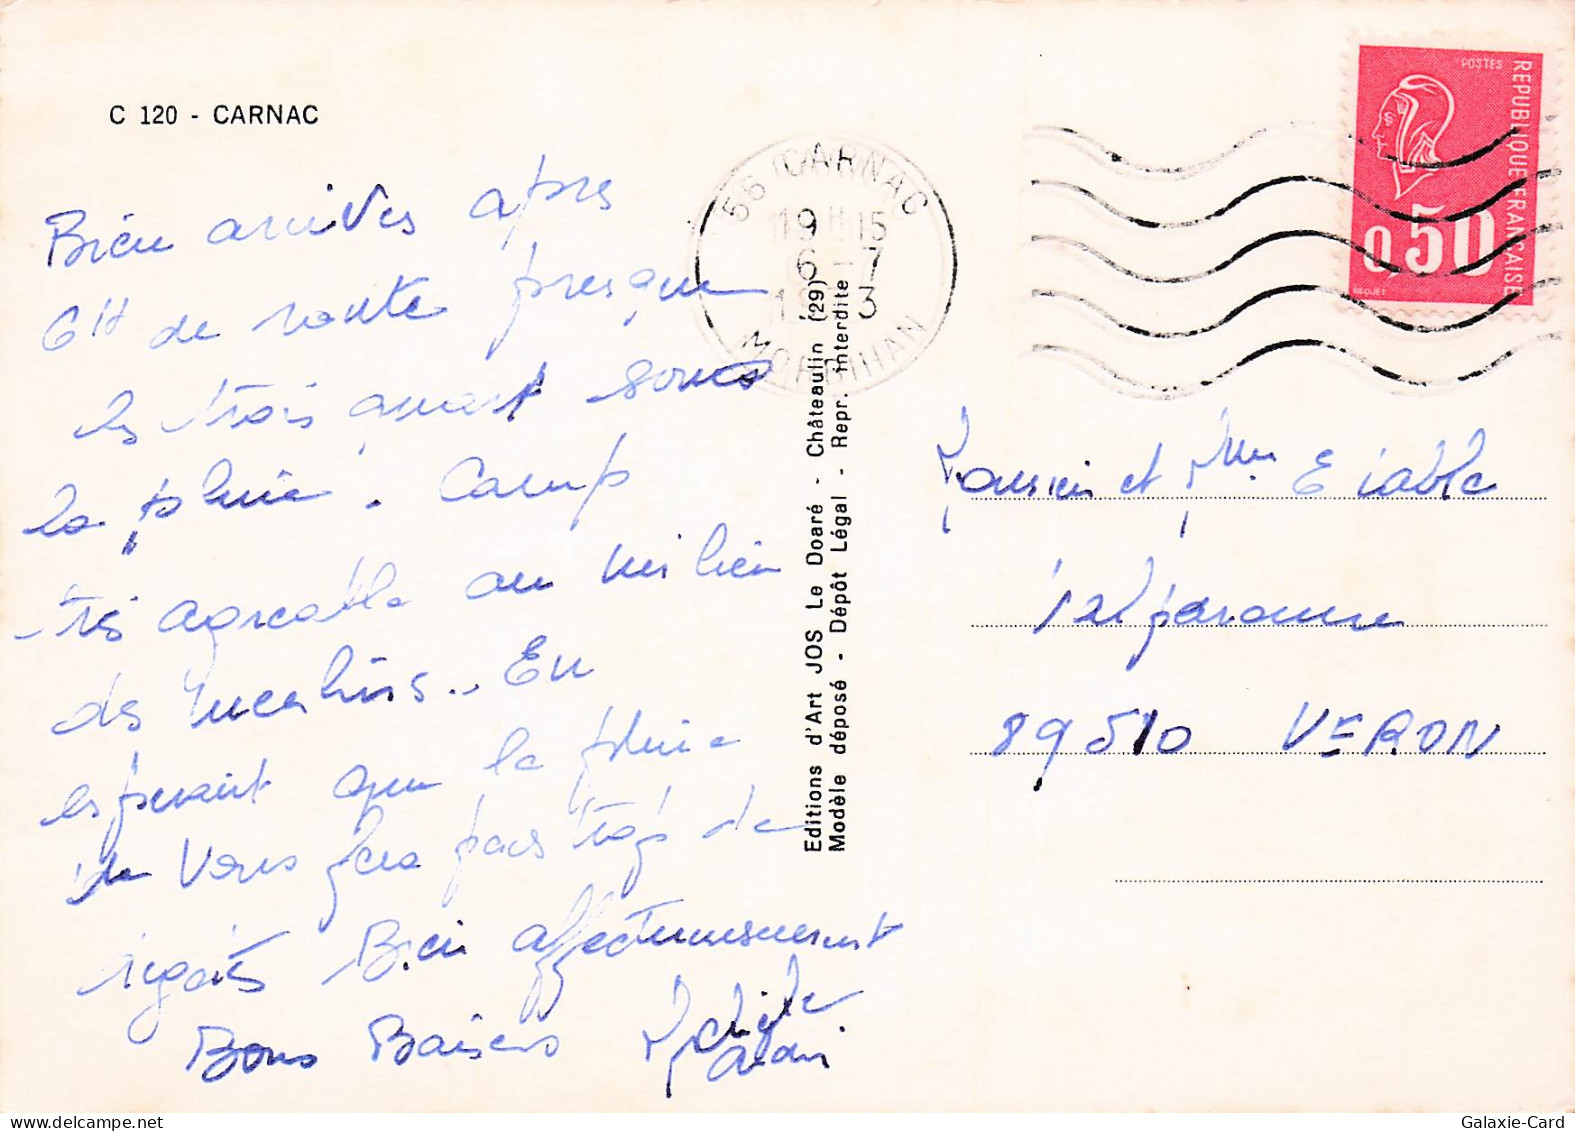 C 120 - CARNAC
Bien arrivés après
6H de route presque
les trois quart sous
la pluie. Camp
très agréable au milieu
des menhirs.. En
esperant que la pluie
ne vous fera pas trop de
dégats Bien affectueusement
Bons Baisers
Alain
56 CARNAC
19H15
6-7
MORBIHAN
Editions d'Art JOS Le Doaré - Châteaulin (29)
Modèle déposé - Dépôt Légal - Repr. interdite
POSTES
REPUBLIQUE FRANÇAISE
0,50
BEQUET
Monsieur et Mme
89510 VERON
Galaxie-Card